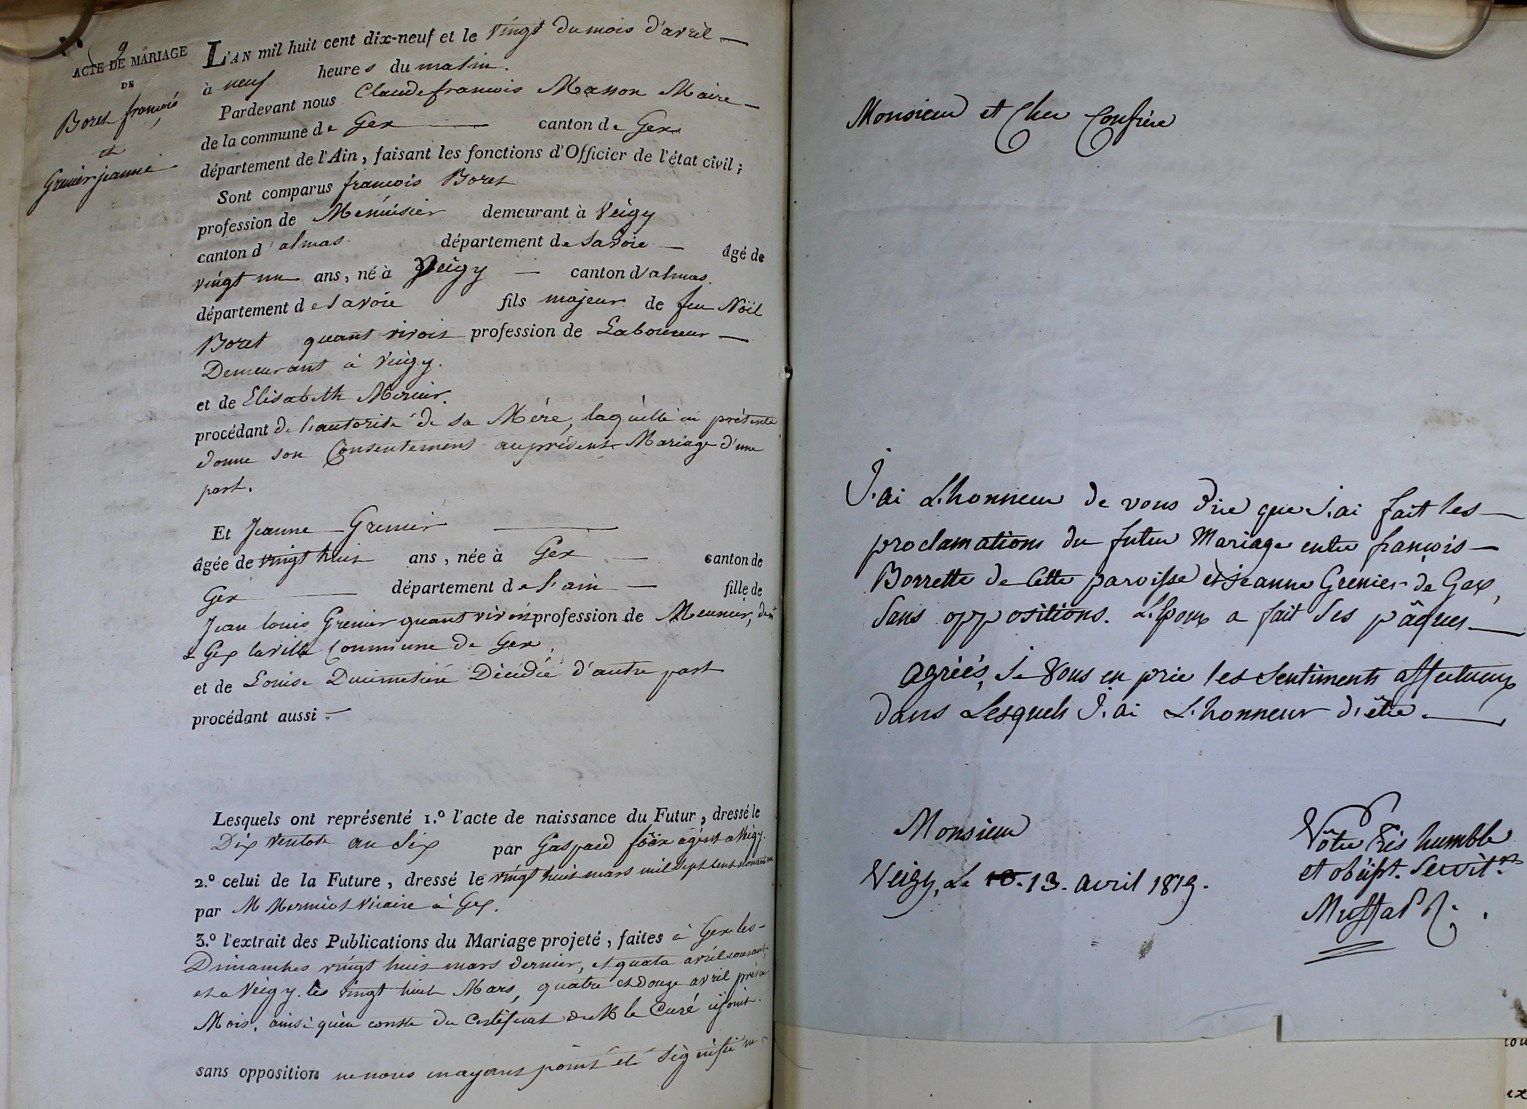 9
ACTE DE MARIAGE
DE
Boret françois
et
Grenier jeanne
L'AN mil huit cent dix-neuf et le vingt du mois d'avril —
à neuf heures du matin.
Pardevant nous Claude françois Masson Maire —
de la commune de Gex — canton de Gex
département de l'Ain, faisant les fonctions d'Officier de l'état civil ;
Sont comparus françois Boret
profession de Menuisier demeurant à Veigy
canton d'almas département de Savoie — âgé de
vingt un ans, né à Veigy — canton d'almas
département de Savoie fils majeur de feu Noël
Boret quant vivoit profession de Laboureur —
Demeurant à Veigy.
et de Elisabeth Mercier.
procédant de l'autorité de sa Mère, laquelle ici présente
donne son Consentement au présent Mariage d'une
part.
Et Jeanne Grenier —
âgée de vingt huit ans, née à Gex — canton de
Gex — département de l'ain — fille de
Jean louis Grenier quant vivoit profession de Meunier, dt
à Gex la ville Commune de Gex.
et de Louise Décédée d'autre part
procédant aussi
Lesquels ont représenté 1.º l'acte de naissance du Futur, dressé le
Dix ventose an Six par Gaspard agent a Veigy.
2.º celui de la Future, dressé le vingt huit mars mil sept cent
par M Mermiot Vicaire à Gex.
3.º l'extrait des Publications du Mariage projeté, faites à Gex les —
Dimanches vingt huit mars dernier, et quatre avril courant,
et a Veigy les vingt huit Mars, quatre et douze avril présent
Mois, ainsi qu'en conste du Certificat de M le Curé ci joint.
sans opposition ne nous en ayant point été signifié
Monsieur et Cher Confrère
J'ai L'honneur de vous dire que J'ai fait les —
proclamations du futur Mariage entre françois —
Borrette de Cette paroisse et Jeanne Grenier de Gex,
Sans oppositions. L'Epoux a fait Ses pâques —
agréés, Je Vous en prie les Sentiments affectueux
dans Lesquels J'ai L'honneur d'être —
Monsieur
Veigy, Le 10. 13. avril 1819.
Vôtre très humble
et obéisst. Servitr.